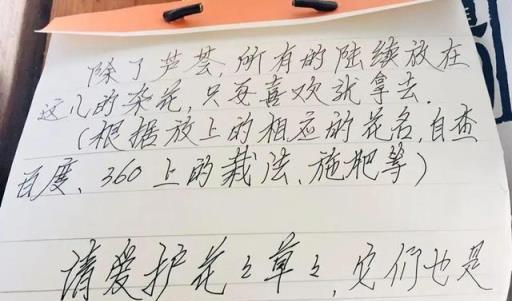 除了芦荟,所有的陆续放在
这儿的杂花,只要喜欢就拿去.
(根据放上的相应的花名,自查
百度、360上的栽法、施肥等)
请爱护花々草々,它们也是